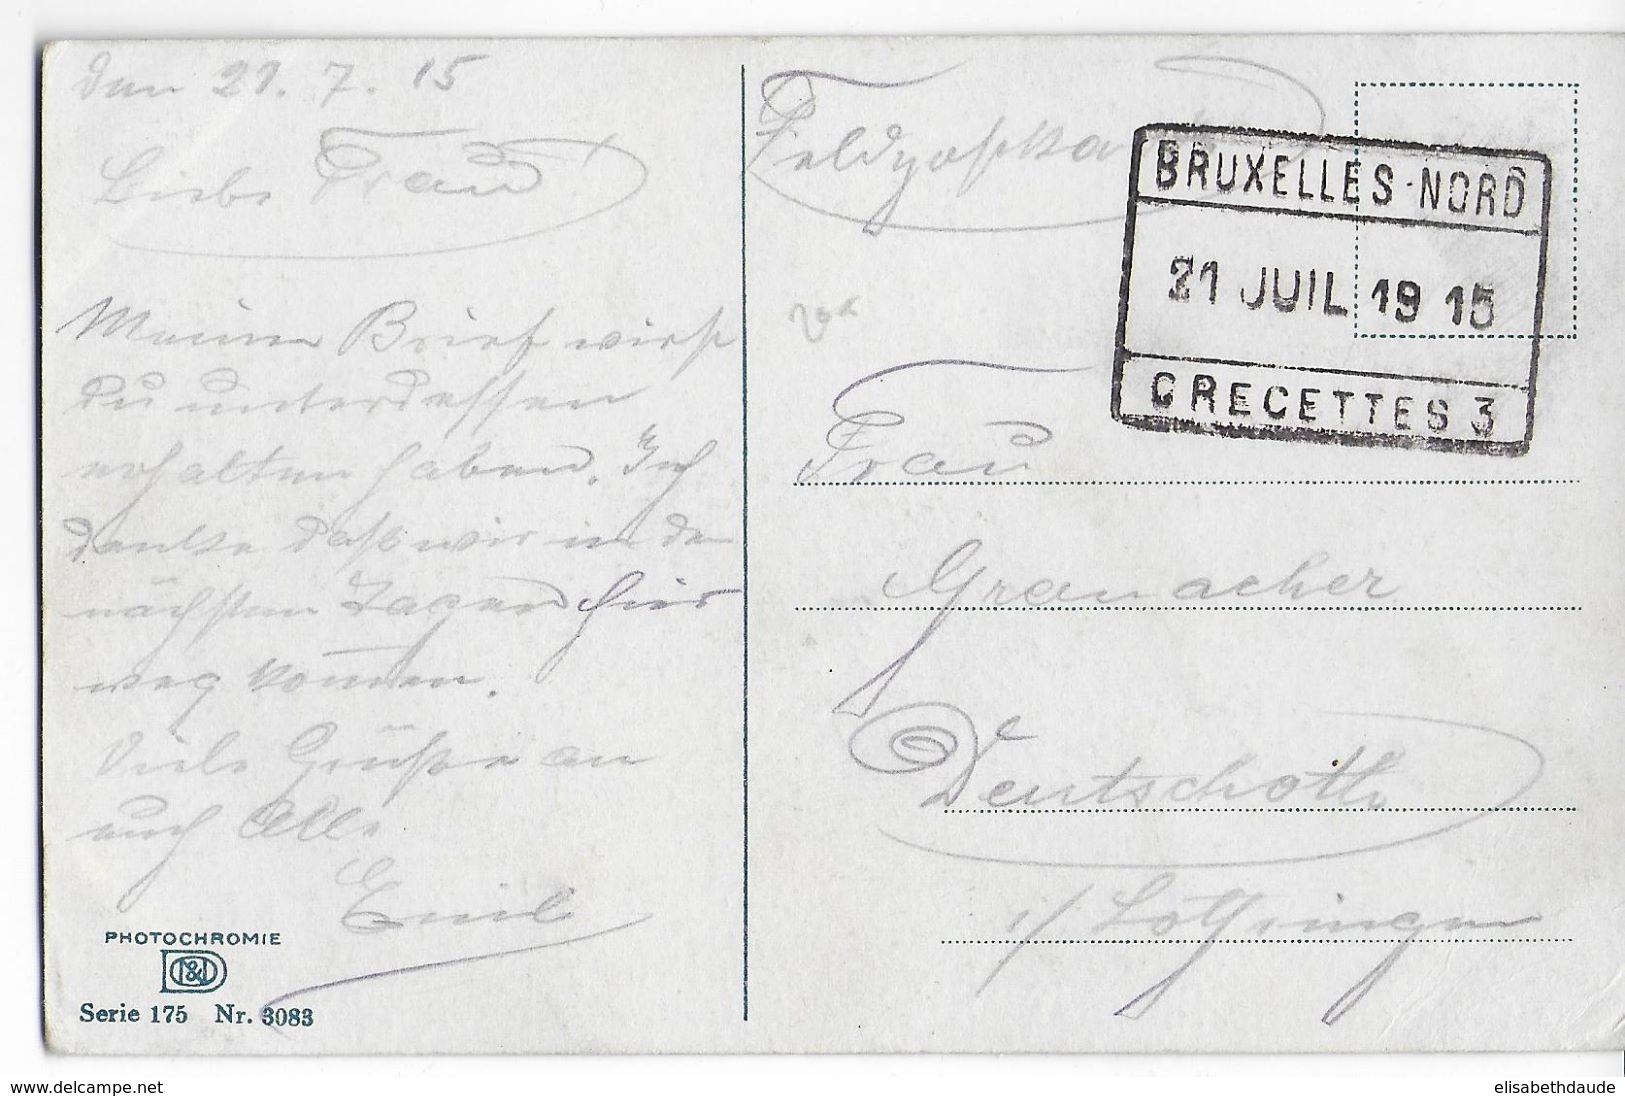 den 21. 7. 15
Liebe Frau
Meinen Brief wirst
Du unterdessen
erhalten haben. Ich
denke daß wir in den
nächsten Tagen hier
weg kommen.
Viele Grüße an
euch Alle
Emil
PHOTOCHROMIE
Serie 175 Nr. 3083
Feldpostka
BRUXELLES-NORD
21 JUIL 19 15
C RECETTES 3
Frau
Gramacher
Deutschoth
i/ Lothringen
www.delcampe.net
elisabethdaude